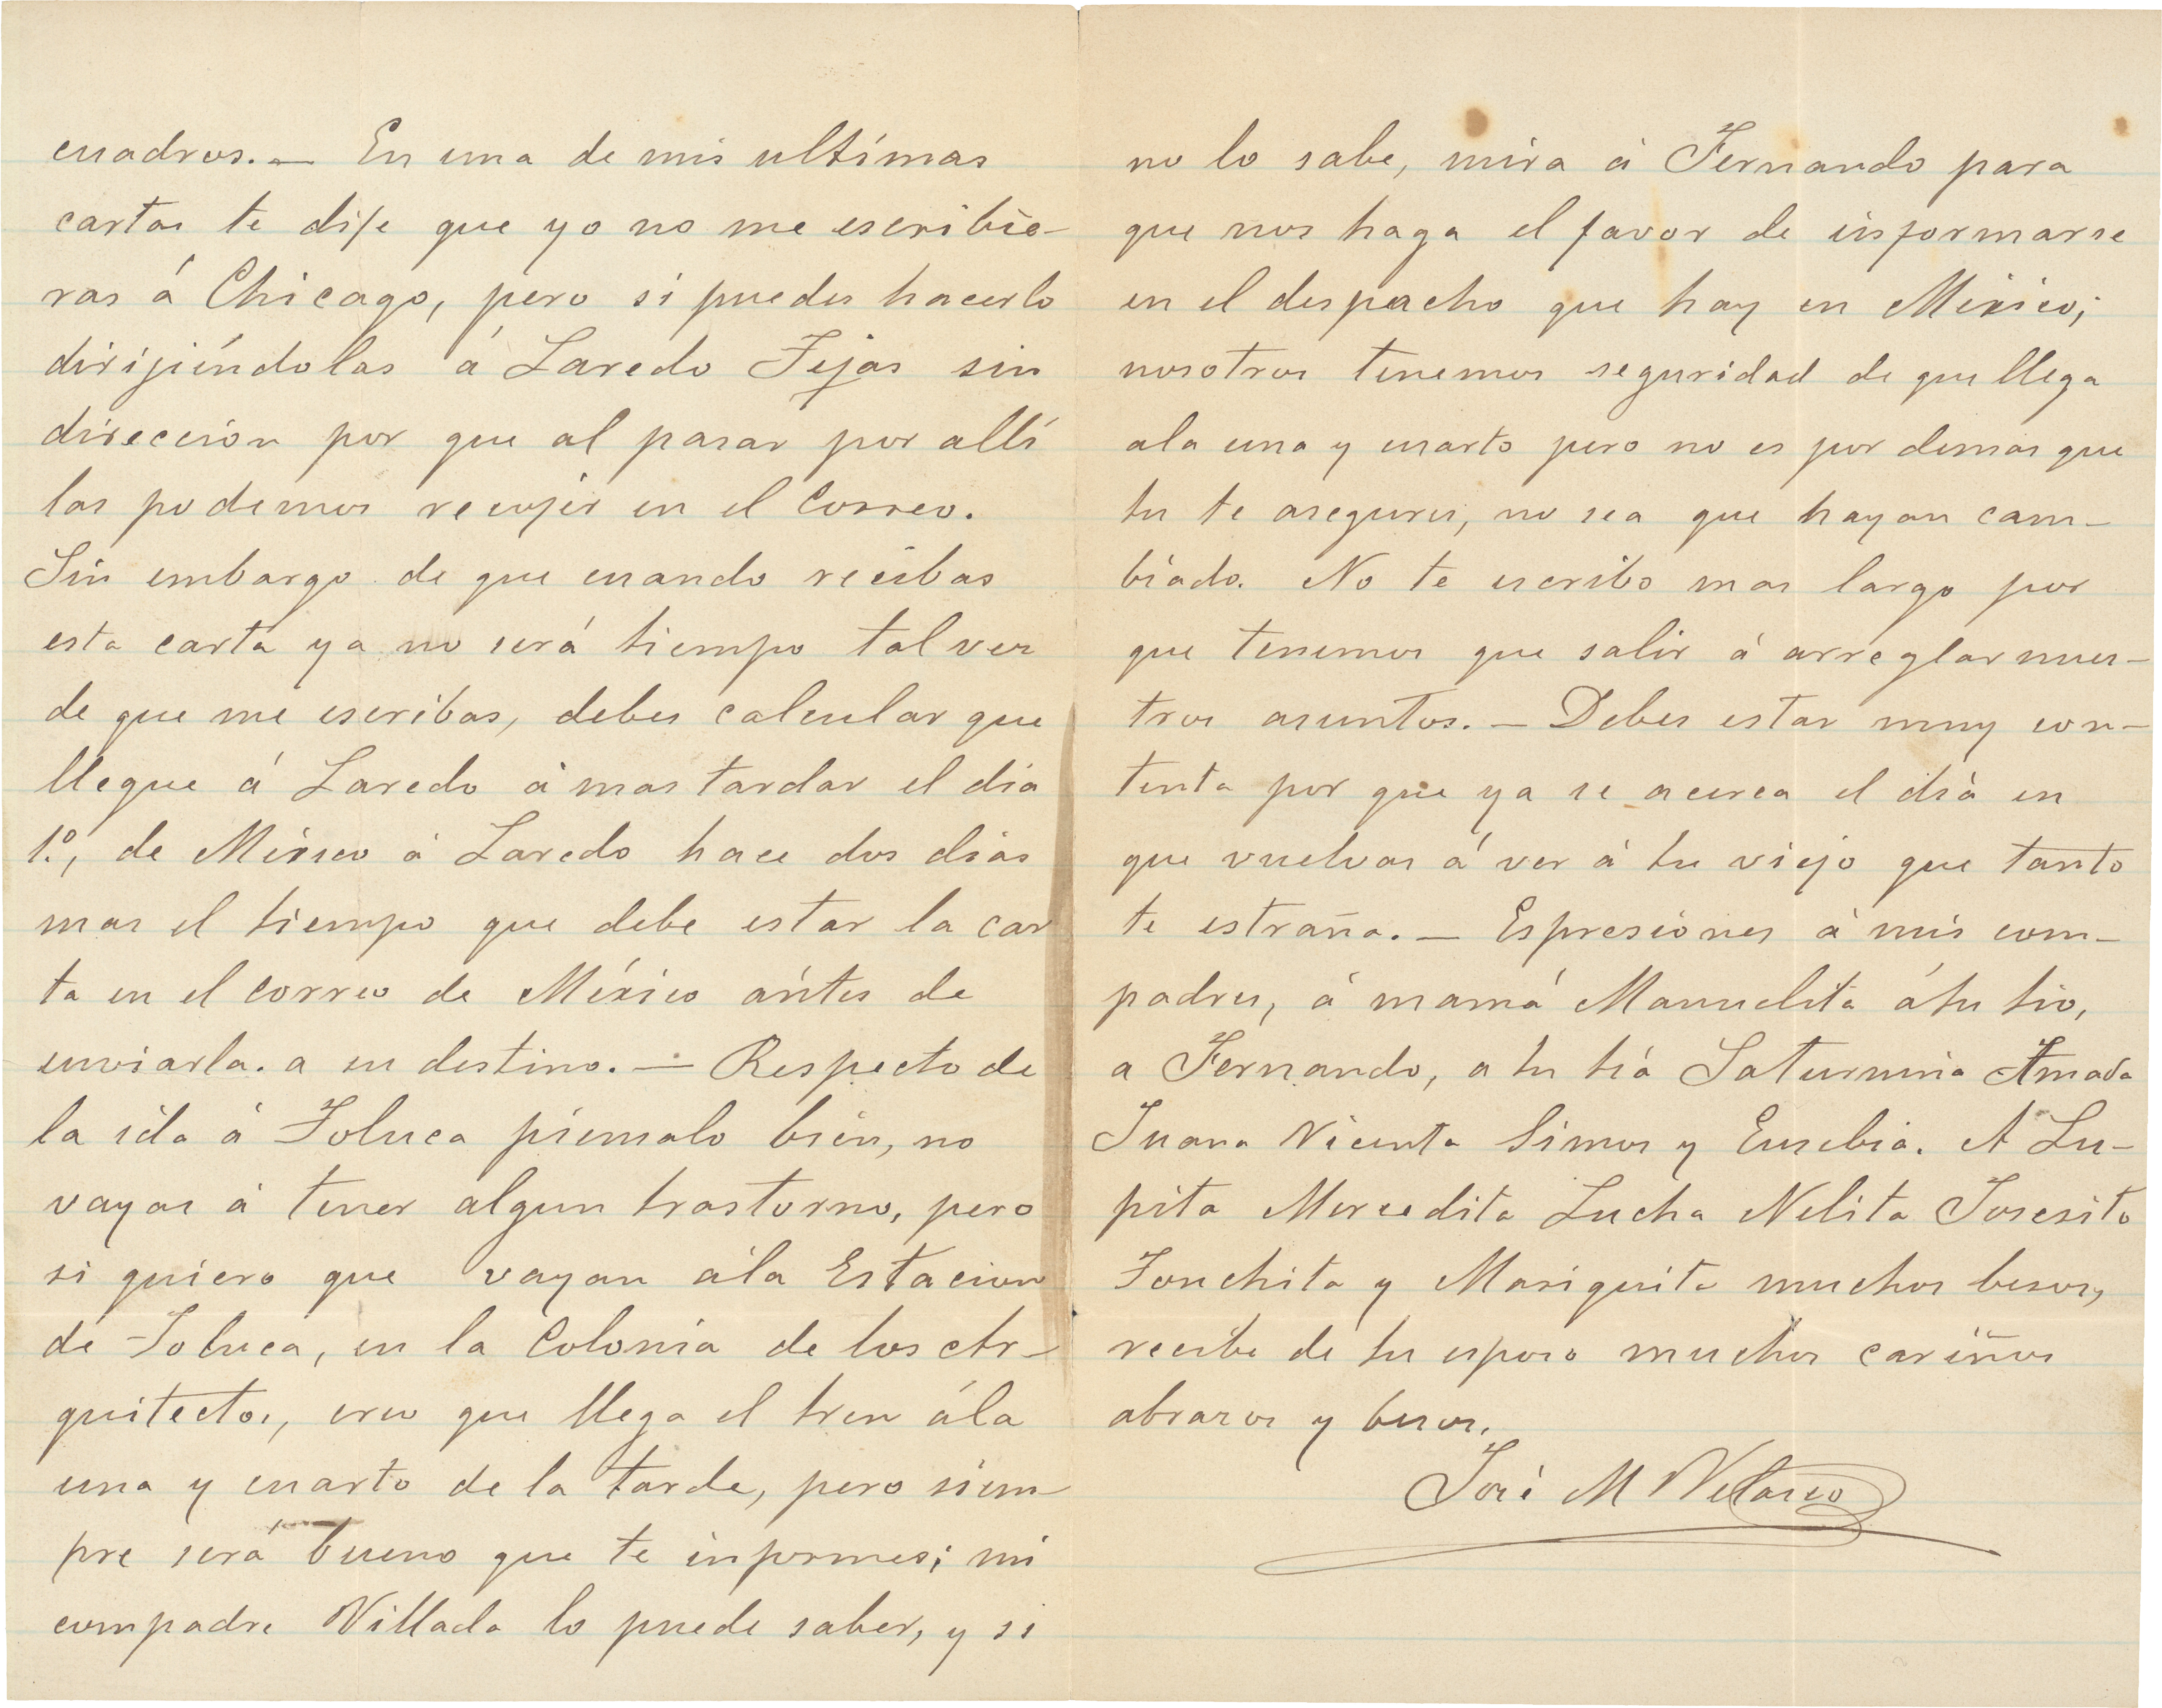 cuadros. — En una de mis ultímas
cartas te dije que yo no me escribie-
ras á Chicago, pero si puedes hacerlo
dirijiéndolas á Laredo Tejas sin
direccion por que al pasar por allí
las podemos recojer en el Correo.
Sin embargo de que cuando recibas
esta carta ya no será tiempo tal vez
de que me escribas, debes calcular que
llegue á Laredo á mas tardar el dia
1.º, de México á Laredo hace dos dias
mas el tiempo que debe estar la car
ta en el correo de México ántes de
enviarla. a su destino. — Respecto de
la ida á Toluca piensalo bien, no
vayas á tener algun trastorno, pero
si quiero que vayan ála Estacion
de Toluca, en la Colonia de los Ar-
quitectos, creo que llega el tren ála
una y cuarto de la tarde, pero siem-
pre será bueno que te informes; mi
compadre Villada lo puede saber, y si
no lo sabe, mira á Fernando para
que nos haga el favor de informarse
en el despacho que hay en México;
nosotros tenemos seguridad de que llega
ala una y cuarto pero no es por demas que
tu te asegures, no sea que hayan cam-
biado. No te escribo mas largo por
que tenemos que salir á arreglar nues-
tros asuntos. — Debes estar muy con-
tenta por que ya se acerca el diá en
que vuelvas á ver á tu viejo que tanto
te estraña. — Espresiones á mis com-
padres, á mamá Manuelita átu tio,
a Fernando, a tu tiá Saturnina Amada
Juana Vicenta Simos y Eusebia. A Lu-
pita Mercedita Lucha Nelita Josesito
Tonchita y Mariquita muchos besos,
recibe de tu esposo muchos cariños
abrazos y besos.
José M Velasco